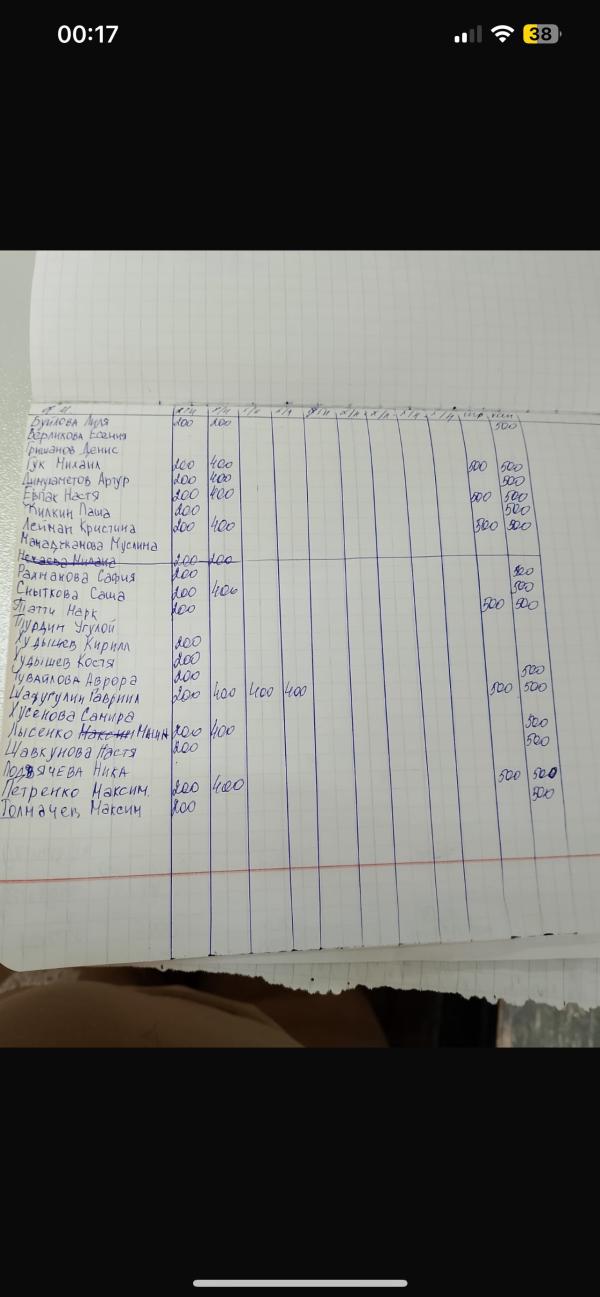 00:17 38
Ф.И. х/н х/н х/н х/н х/н х/н х/н х/н х/н
Буйлова Лиля 200 200 500
Верликова Есения
Гришанов Денис
Гук Милана 200 400 500 500
Динуаметов Артур 200 400 500
Евпак Настя 200 400 500 500
Жилкин Паша 200 500
Лейман Кристина 200 400 500 500
Мамаджанова Муслима
Нехаева Милана 200 200
Рахманова София 200 500
Сныткова Саша 200 400 500
Татти Марк 200 500 500
Турдин Угулой
Худышев Кирилл 200
Худышев Костя 200
Чувайлова Аврора 200 500
Шахугулин Гавриил 200 400 400 400 500 500
Хусенова Самира
Лысенко Максим Маша 200 400 500
Шавкунова Настя 200 500
Подвячева Ника
Петренко Максим. 200 400 500 500
Толмачев Максим 200 500